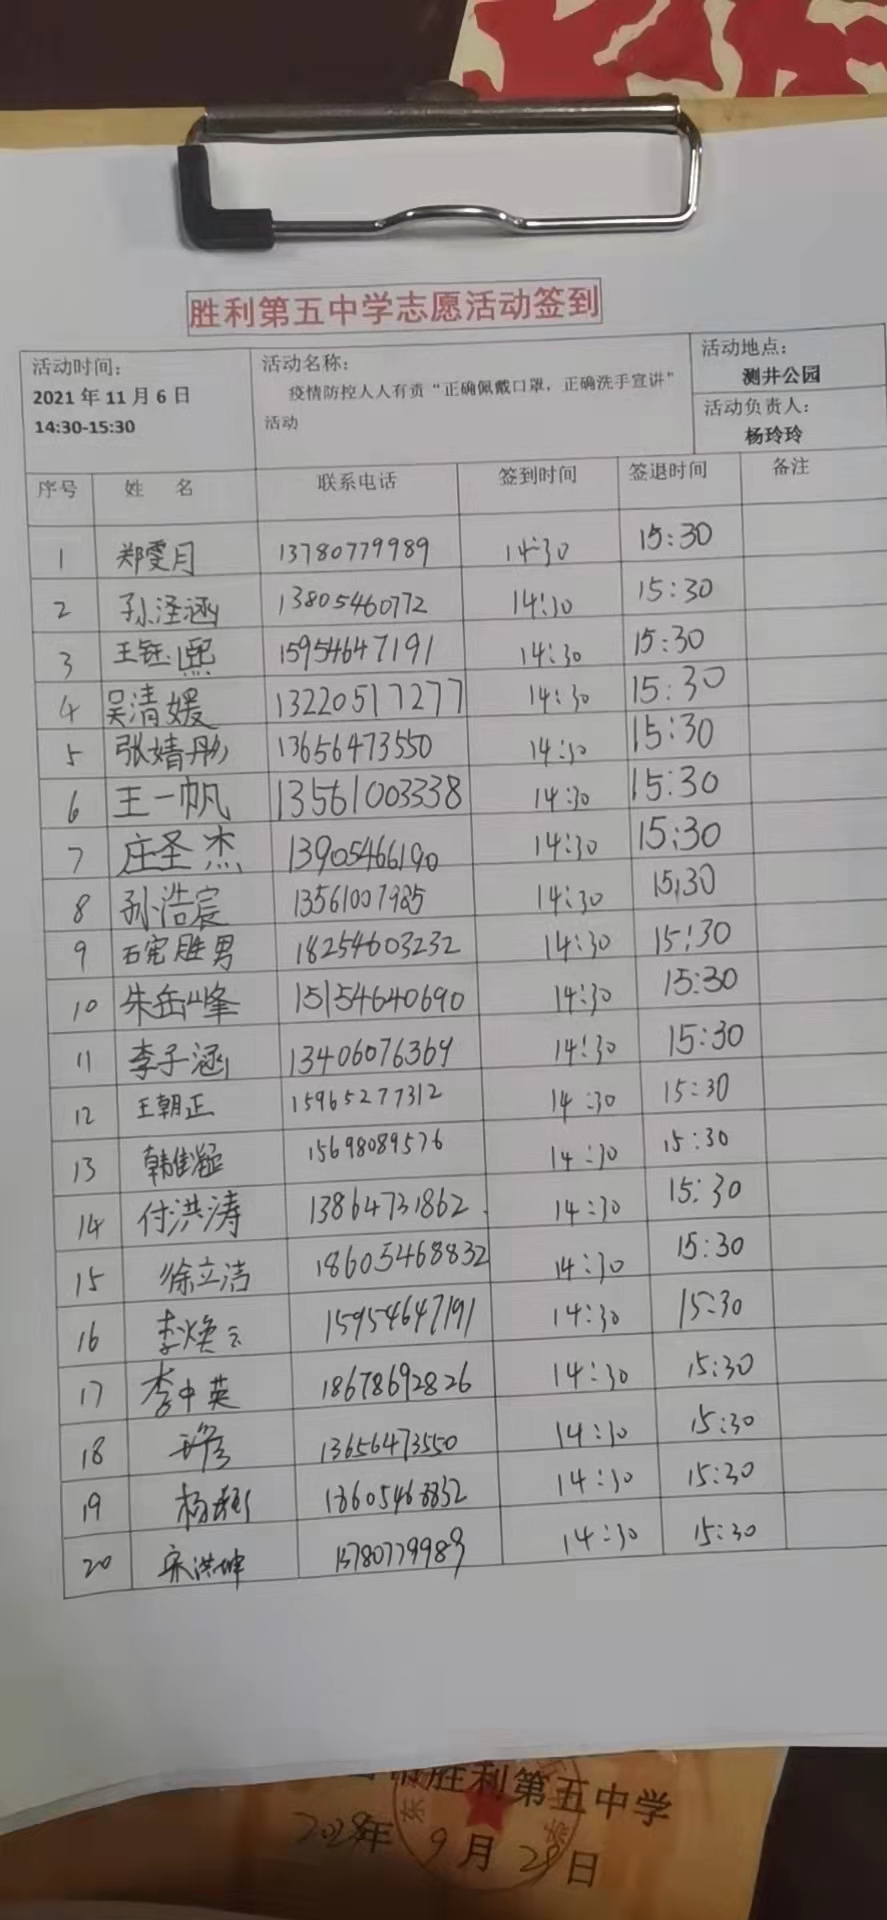 胜利第五中学志愿活动签到
活动时间：
2021年11月6日
14:30-15:30
活动名称：
疫情防控人人有责“正确佩戴口罩，正确洗手宣讲”
活动
活动地点：
测井公园
活动负责人：
杨玲玲
序号 姓 名 联系电话 签到时间 签退时间 备注
1 郑雯月 13780779989 14:30 15:30
2 孙泽涵 13805460772 14:30 15:30
3 王钰熙 15954647191 14:30 15:30
4 吴清媛 13220517277 14:30 15:30
5 张婧彤 13656473550 14:30 15:30
6 王一帆 13561003338 14:30 15:30
7 庄圣杰 13905466190 14:30 15:30
8 孙浩宸 13561007985 14:30 15:30
9 石宪胜男 18254603232 14:30 15:30
10 朱岳峰 15154640690 14:30 15:30
11 李子涵 13406076369 14:30 15:30
12 王朝正 15965277312 14:30 15:30
13 15698089576 14:30 15:30
14 付洪涛 13864731862 14:30 15:30
15 徐立洁 18605468832 14:30 15:30
16 李焕云 15954647191 14:30 15:30
17 李中英 18678692826 14:30 15:30
18 13656473550 14:30 15:30
19 18605468832 14:30 15:30
20 宋洪坤 13780779989 14:30 15:30
胜利第五中学
年9月29日